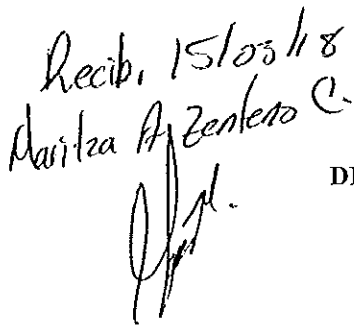 Recibi 15/03/18
Maritza A. Zenteno C.
DI